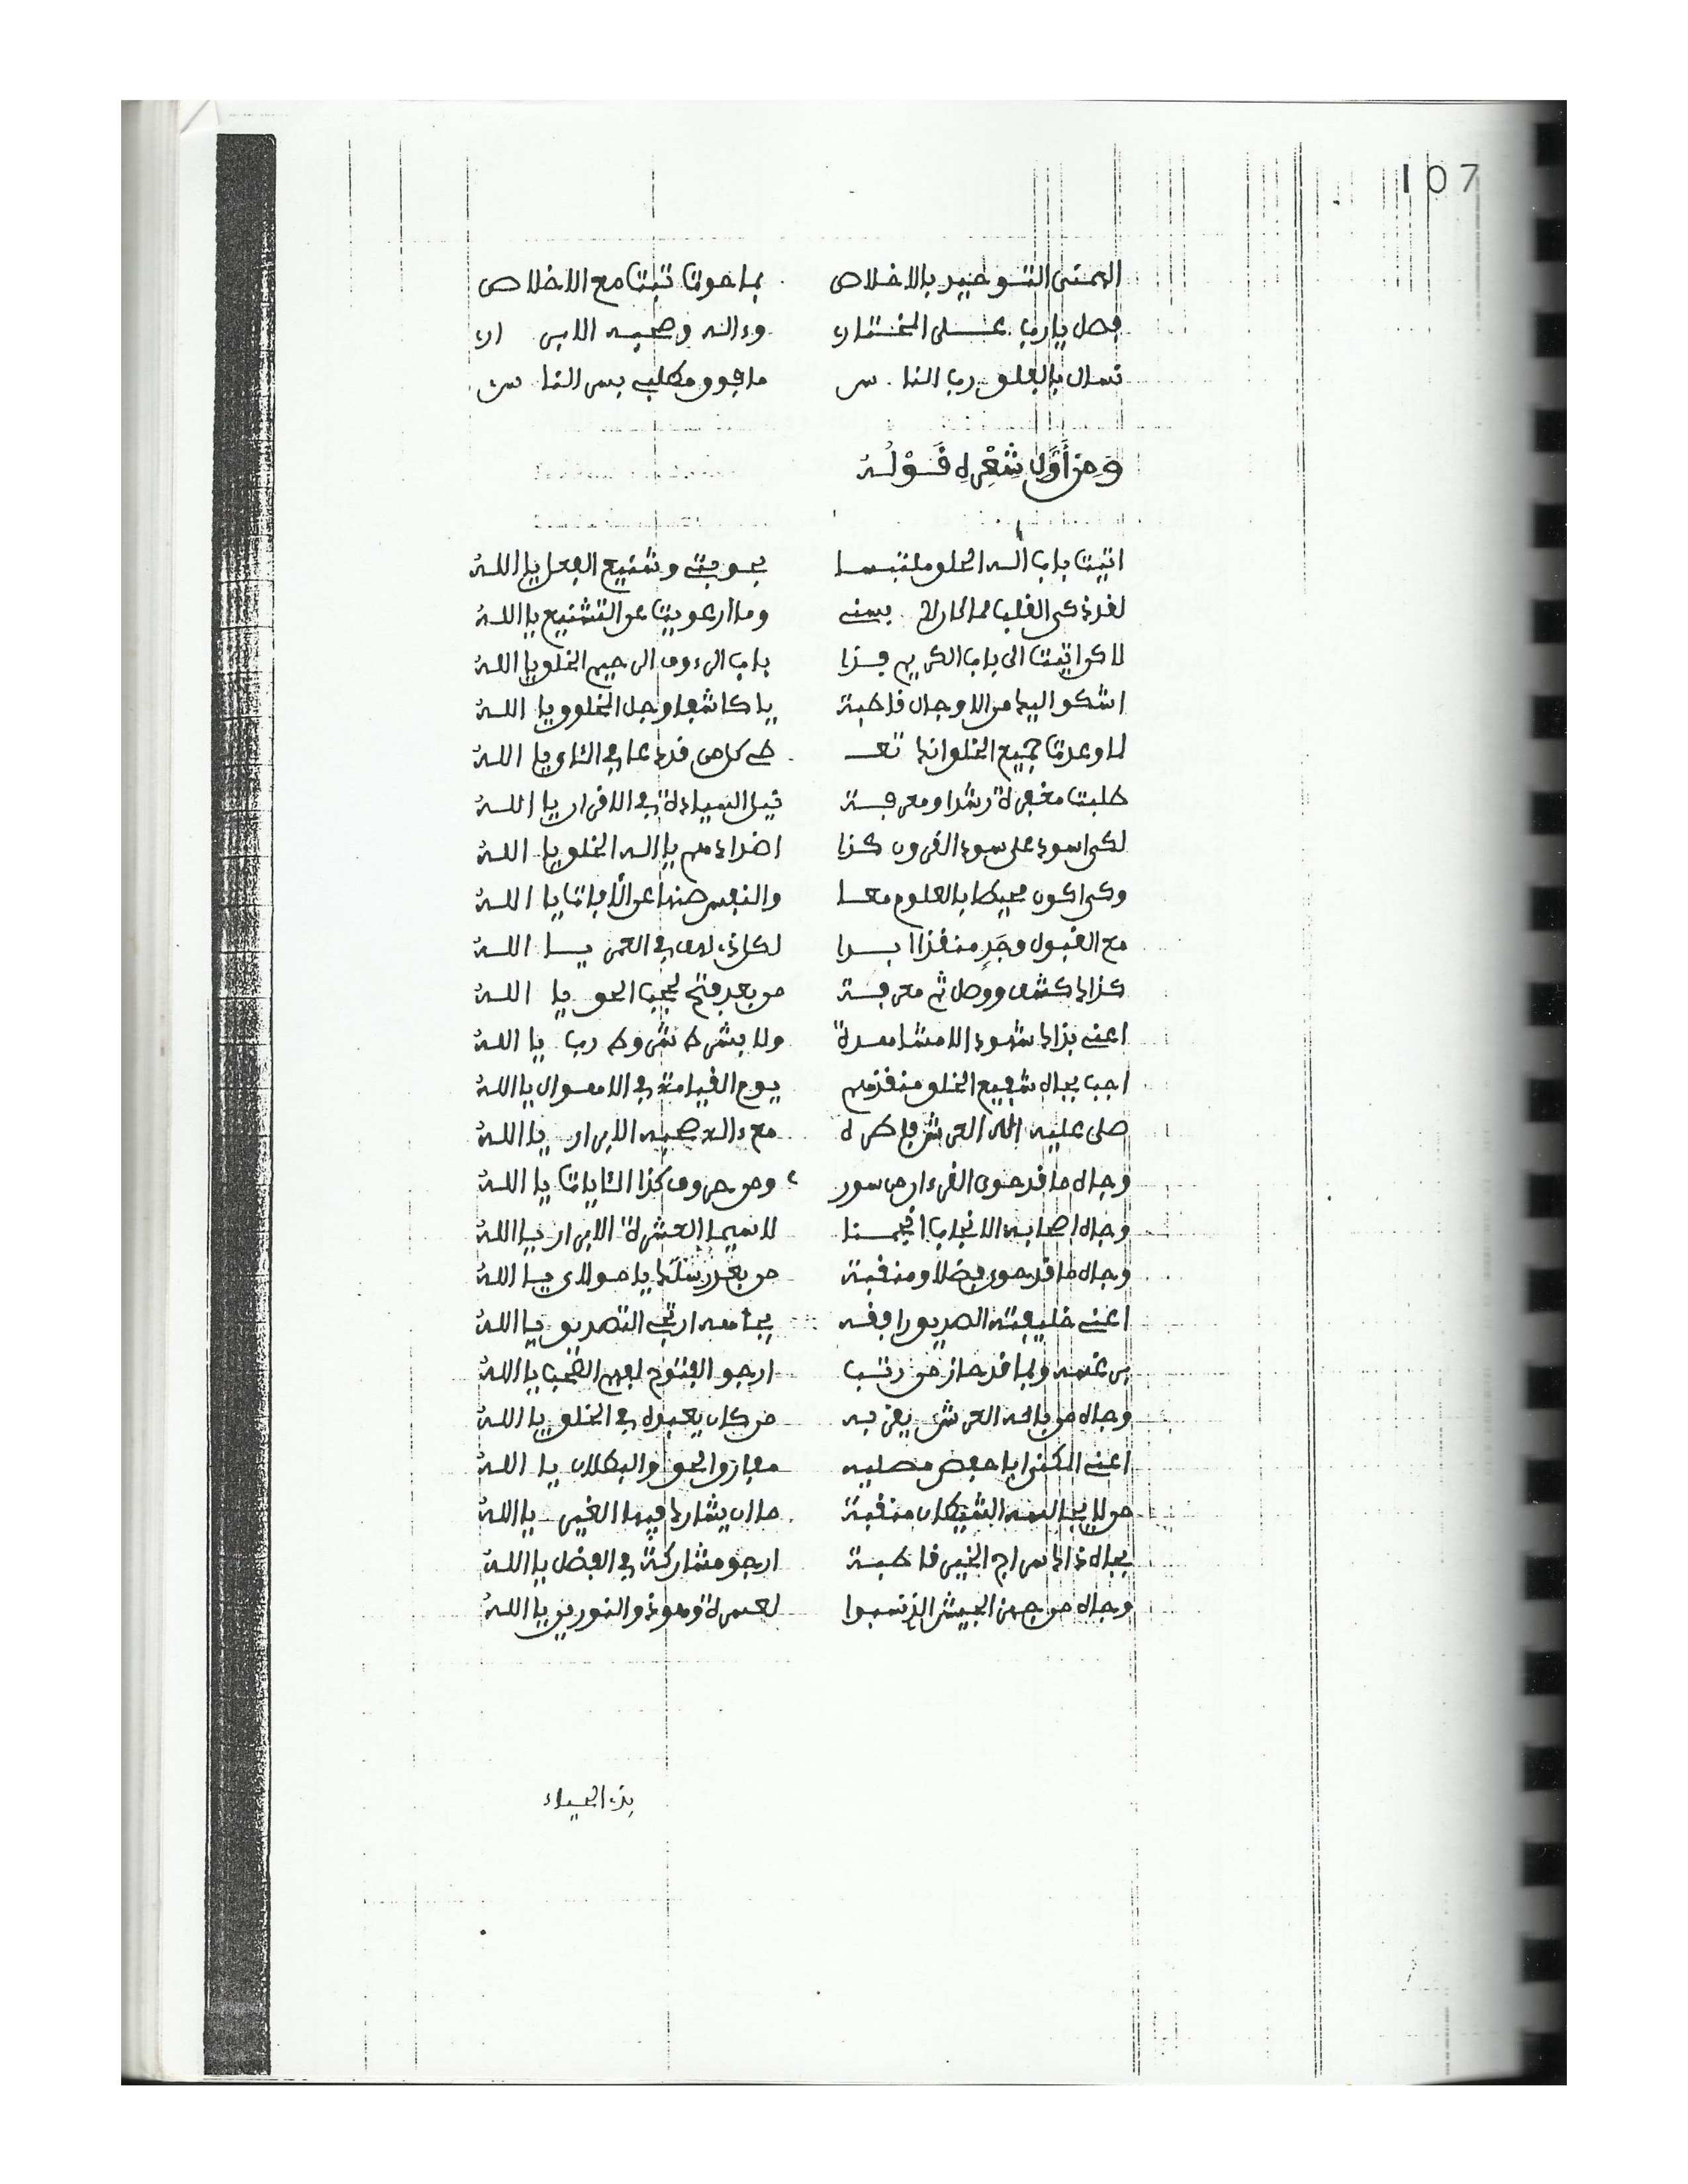 107
الهمتنى التوحيد بالاخلاص بما حوت تبت مع الاخلاص
فصل يا رب على المختار وءاله وصحبه الابرار
نسال بالفلق رب الناس ما فوق مطلب بسر الناس
وَمِنْ أَوَّلِ شِعْرِهِ قَوْلُهُ
اتيت باب اله الخلق ملتبسا بحوبتي وشنيع الفعل يا اللهُ
لقد ذكى القلب يمنى وما ارعويت عن التشنيع يا اللهُ
لاكن اتيت الى باب الكريم باب الرءوف الرحيم الخلق يا اللهُ
اشكو اليك من الاوجال قاطبة يا كاشفا وجل المخلوق يا اللهُ
لما وعدت جميع الخلق انك تعـ طي كل من قد دعا في الثاى يا اللهُ
طلبت مغفرة رشدا ومعرفة نيل السيادة في الاقران يا اللهُ
لكى اسود على سود القرون كذا اضدادهم يا اله الخلق يا اللهُ
وكى اكون محيطا بالعلوم معا والنفس صنها عن الآفات يا اللهُ
مع القبول وجد منقذا ابدا لكل ذى لدى في العمر يا اللهُ
كذاك كشف ووصل ثم معرفة من بعد فتح لحجب الحق يا اللهُ
اعني بذاك شهود الا مشاهدة ولا بشرط شروط رب يا اللهُ
اجب بجاه شفيع الخلق منقذهم يوم القيامة في الاهوال يا اللهُ
صلى عليه اله العرش فاطره مع ءاله صحبه الابرار يا اللهُ
وجاه ما قد حوى القرءان من سور ومن حروف كذا الئايات يا اللهُ
وجاه اصحابه الانجاب انجمنا لاسيما العشرة الابرار يا اللهُ
وجاه ما قد حوى فضلا ومنقبة من بعد رسلك يا مولاى يا اللهُ
اعني خليفته الصديق رافقه بجاهه ارتجي التصديق يا اللهُ
وبما قد حاز من رتب ارجو الفتوح لهم الحجب يا اللهُ
وجاه من باله العرش يفر به من كان يعبده في الخلق يا اللهُ
اعني المكنى ابا حفص فصليه مفارق الحق والبطلان يا اللهُ
من لا يجالسه الشيطان منقبة ما ان يشارك فيها الغير يا اللهُ
بجاه ذاك سراج الخير قاطبة ارجو مشاركة في الفضل يا اللهُ
وجاه من جهز الجيش الذ نسبوا لعسرة وهو ذو النورين يا اللهُ